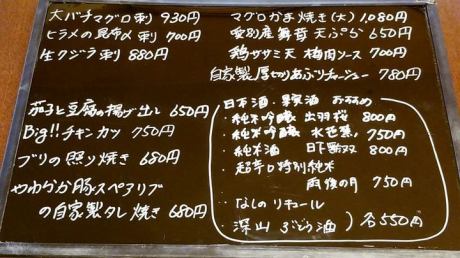 大バチマグロ刺 930円
ヒラメの昆布〆刺 700円
生クジラ刺 880円
茄子と豆腐の揚げ出し 650円
Big!! チキンカツ 750円
ブリの照り焼き 680円
やわらか豚スペアリブ
の自家製タレ焼き 680円
マグロかま焼き(大) 1,080円
愛別産舞茸天ぷら 650円
鶏ササミ天 梅肉ソース 700円
自家製厚切りあぶりチャーシュー 780円
日本酒・果実酒 おすすめ
・純米吟醸 出羽桜 800円
・純米吟醸 水芭蕉 750円
・純米酒 日下無双 800円
・超辛口特別純米
雨後の月 750円
・なしのリキュール
・深山ぶどう酒 ) 各550円